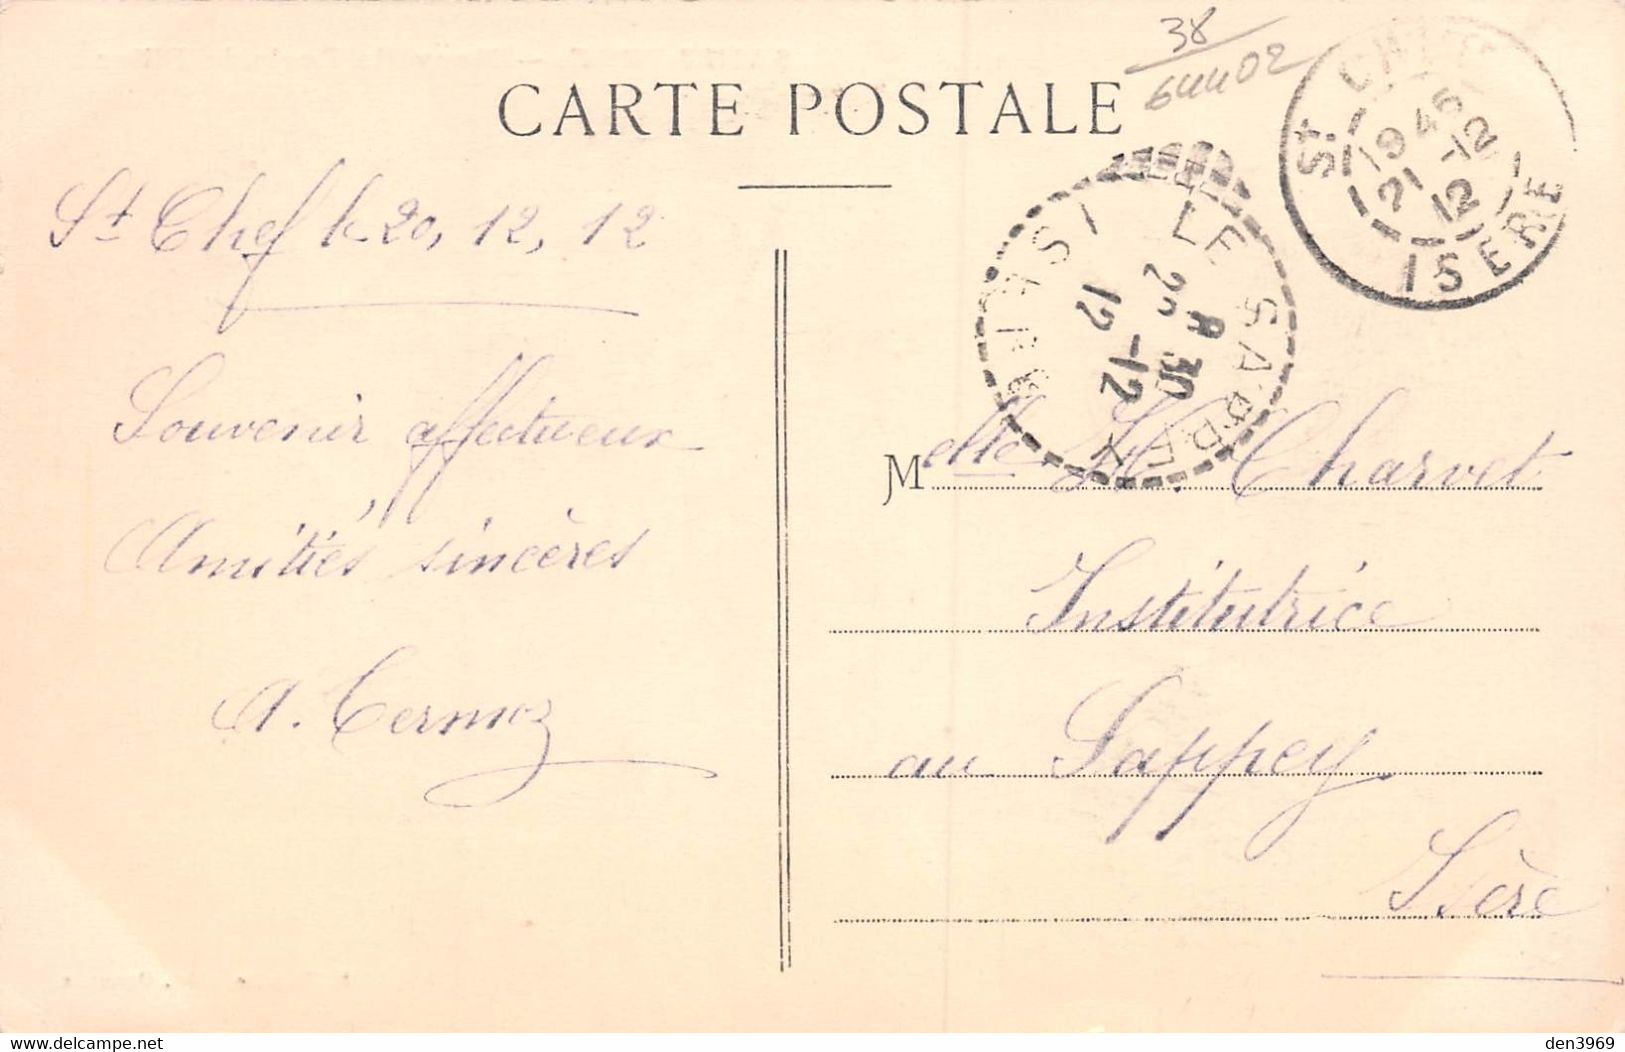 38
64402
CARTE POSTALE
St CHEF
1945
21 -12
12
ISERE
LE SAPPEY
22 R 30
12 -12
ISERE
St Chef le 20, 12, 12
Souvenir affectueux
Amitiés sincères
A. Termoz
Melle M. Charvet
Institutrice
au Sappey
Isère
www.delcampe.net
den3969